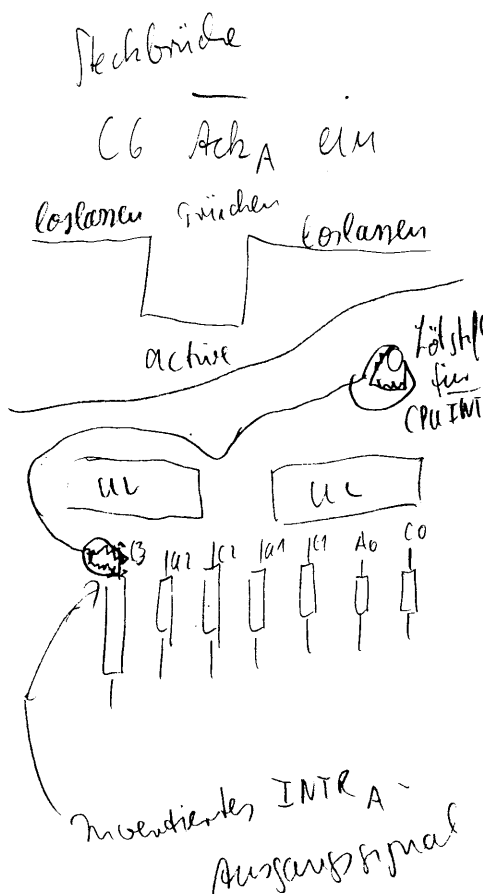 Steckbrücke
C6 Ack_A ein
loslassen drücken loslassen
active
für
CPU INT
UL UL
C3 A2 C2 A1 C1 A0 C0
Invertiertes INTR_A-
Ausgangssignal